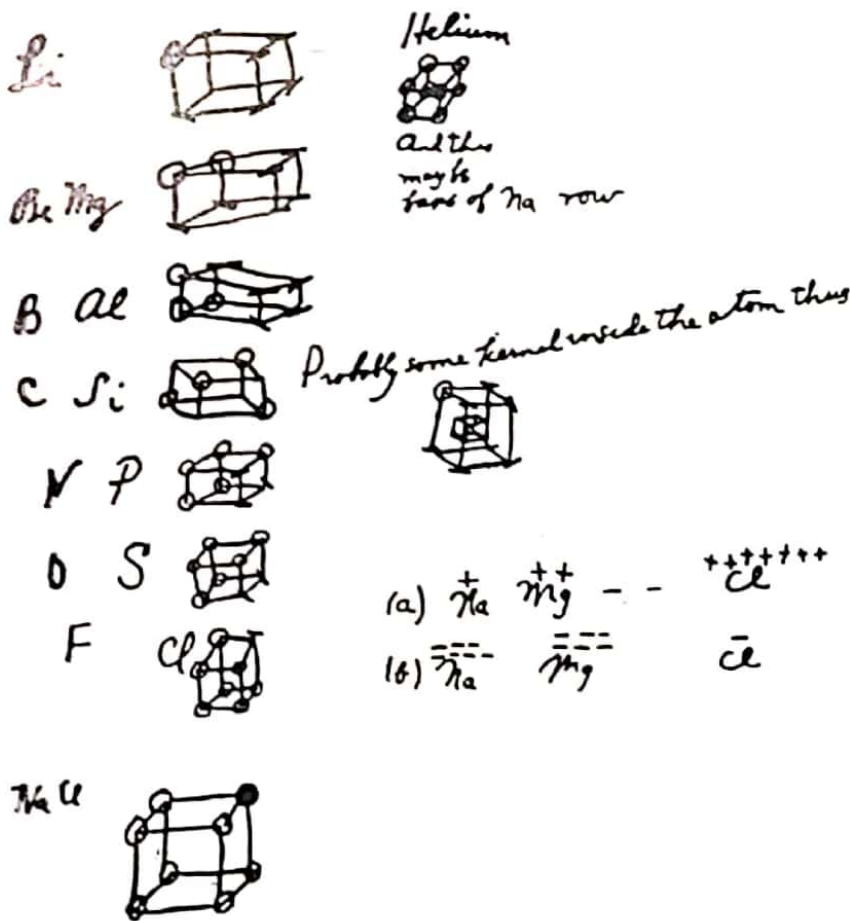 Li
Helium
And this
may be
of Na row
Be Mg
B Al
C Si
Probably some kernel inside the atom thus
N P
O S
F Cl
(a) + Na ++ Mg - - +++++++ Cl
(b) ------- Na ------ Mg - Cl
Na Cl